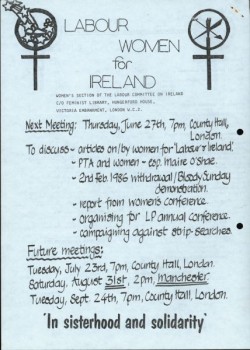 LABOUR
WOMEN
for
IRELAND
WOMEN'S SECTION OF THE LABOUR COMMITTEE ON IRELAND
C/O FEMINIST LIBRARY, HUNGERFORD HOUSE,
VICTORIA EMBANKMENT, LONDON W.C.2.
Next Meeting: Thursday, June 27th, 7pm, County Hall,
London.
To discuss - articles on/by women for 'Labour & Ireland'.
- PTA and women - esp. Maire O'Shae.
- 2nd Feb. 1986 withdrawal/Bloody Sunday
demonstration.
- report from women's conference.
- organising for LP annual conference.
- campaigning against strip-searches.
Future meetings:
Tuesday, July 23rd, 7pm, County Hall, London.
Saturday, August 31st, 2pm, Manchester.
Tuesday, Sept 24th, 7pm, County Hall, London.
'In sisterhood and solidarity'